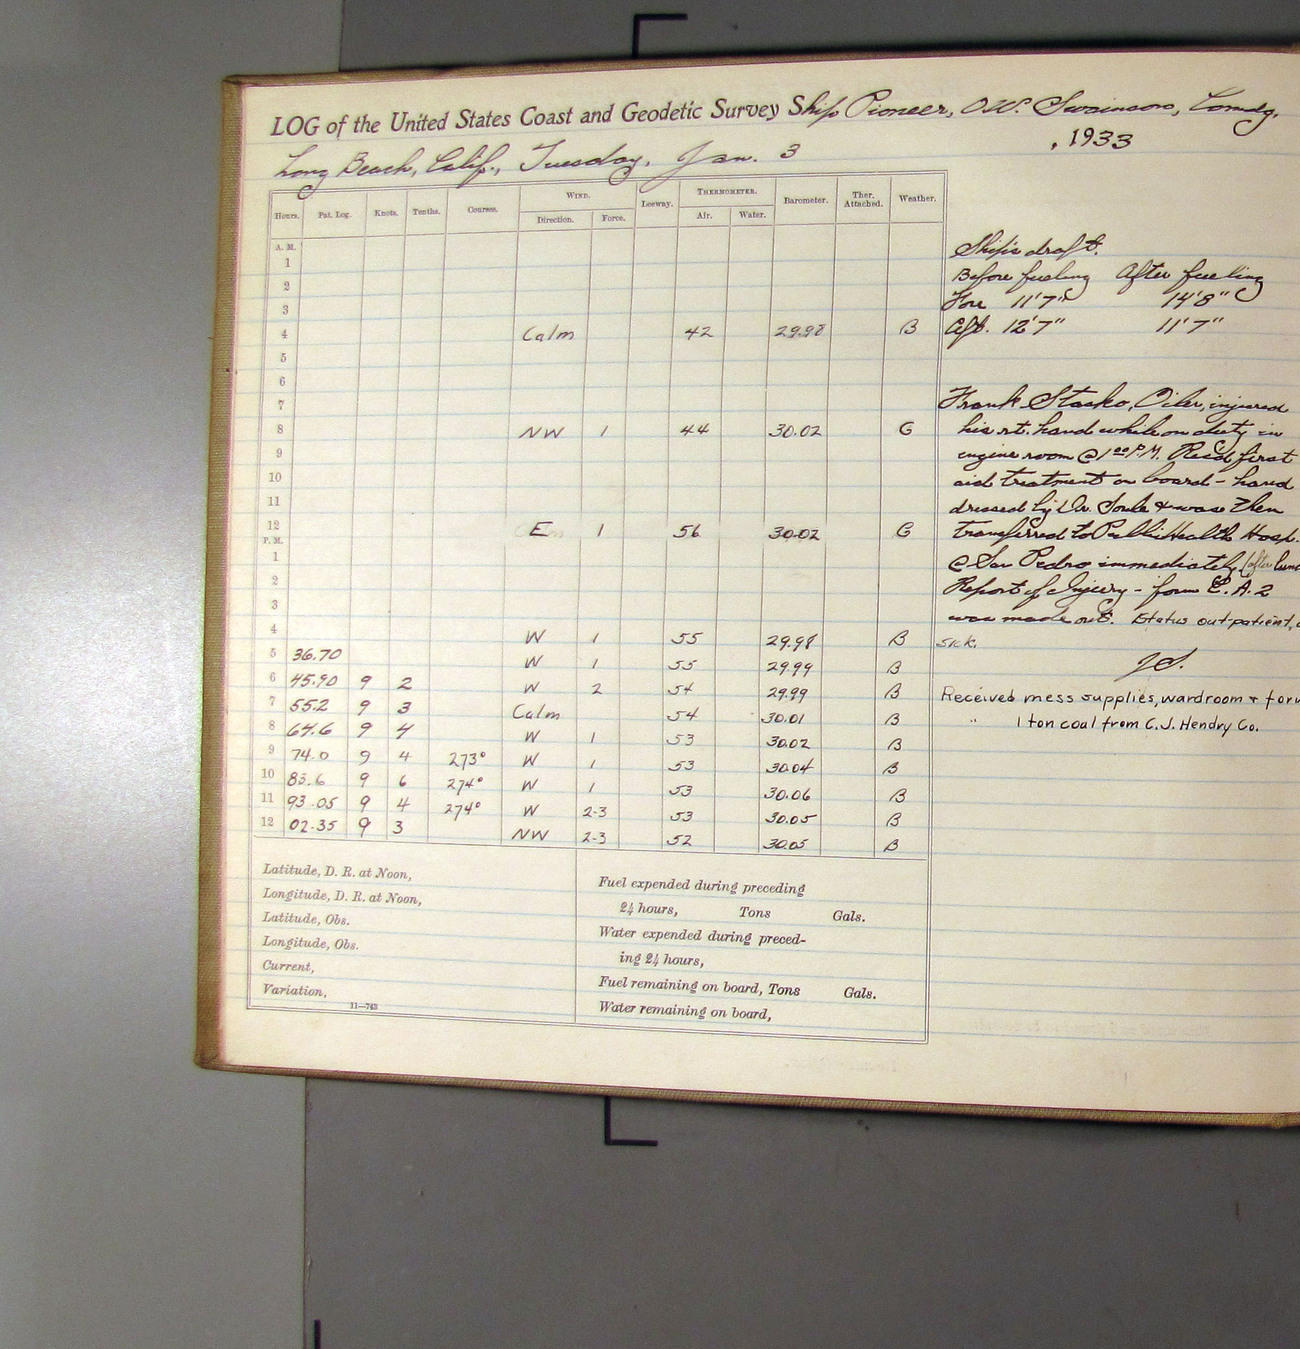 LOG of the United States Coast and Geodetic Survey Ship Pioneer, O.W. Swainson, Comdg.
Long Beach, Calif., Tuesday, Jan. 3 , 1933
Hours. Pat. Log. Knots. Tenths. Courses. WIND. Direction. Force. Leeway. THERMOMETER. Air. Water. Barometer. Ther. Attached. Weather.
A. M.
1
2
3
4 Calm 42 29.98 B
5
6
7
8 NW 1 44 30.02 C
9
10
11
12 E 1 56 30.02 C
P. M.
1
2
3
4 W 1 55 29.98 B
5 36.70 W 1 55 29.99 B
6 45.90 9 2 W 2 54 29.99 B
7 55.2 9 3 Calm 54 30.01 B
8 64.6 9 4 W 1 53 30.02 B
9 74.0 9 4 273° W 1 53 30.04 B
10 83.6 9 6 274° W 1 53 30.06 B
11 93.05 9 4 274° W 2-3 53 30.05 B
12 02.35 9 3 NW 2-3 52 30.05 B
Latitude, D. R. at Noon,
Longitude, D. R. at Noon,
Latitude, Obs.
Longitude, Obs.
Current,
Variation,
11—743
Fuel expended during preceding
24 hours, Tons Gals.
Water expended during preced-
ing 24 hours,
Fuel remaining on board, Tons Gals.
Water remaining on board,
Ship's draft.
Before fueling After fueling
Fore 11'7" 14'8"
Aft. 12'7" 11'7"
Frank Stasko, Oiler, injured
his rt. hand while on duty in
engine room @ 1 00 P.M. Recd first
aid treatment on board - hand
dressed by Dr. Soule & was then
transferred to Public Health Hosp.
@ San Pedro immediately (after
Report of Injury - form C.A. 2
was made out. Status outpatient,
sick.
J.S.
Received mess supplies, wardroom &
" 1 ton coal from C.J. Hendry Co.